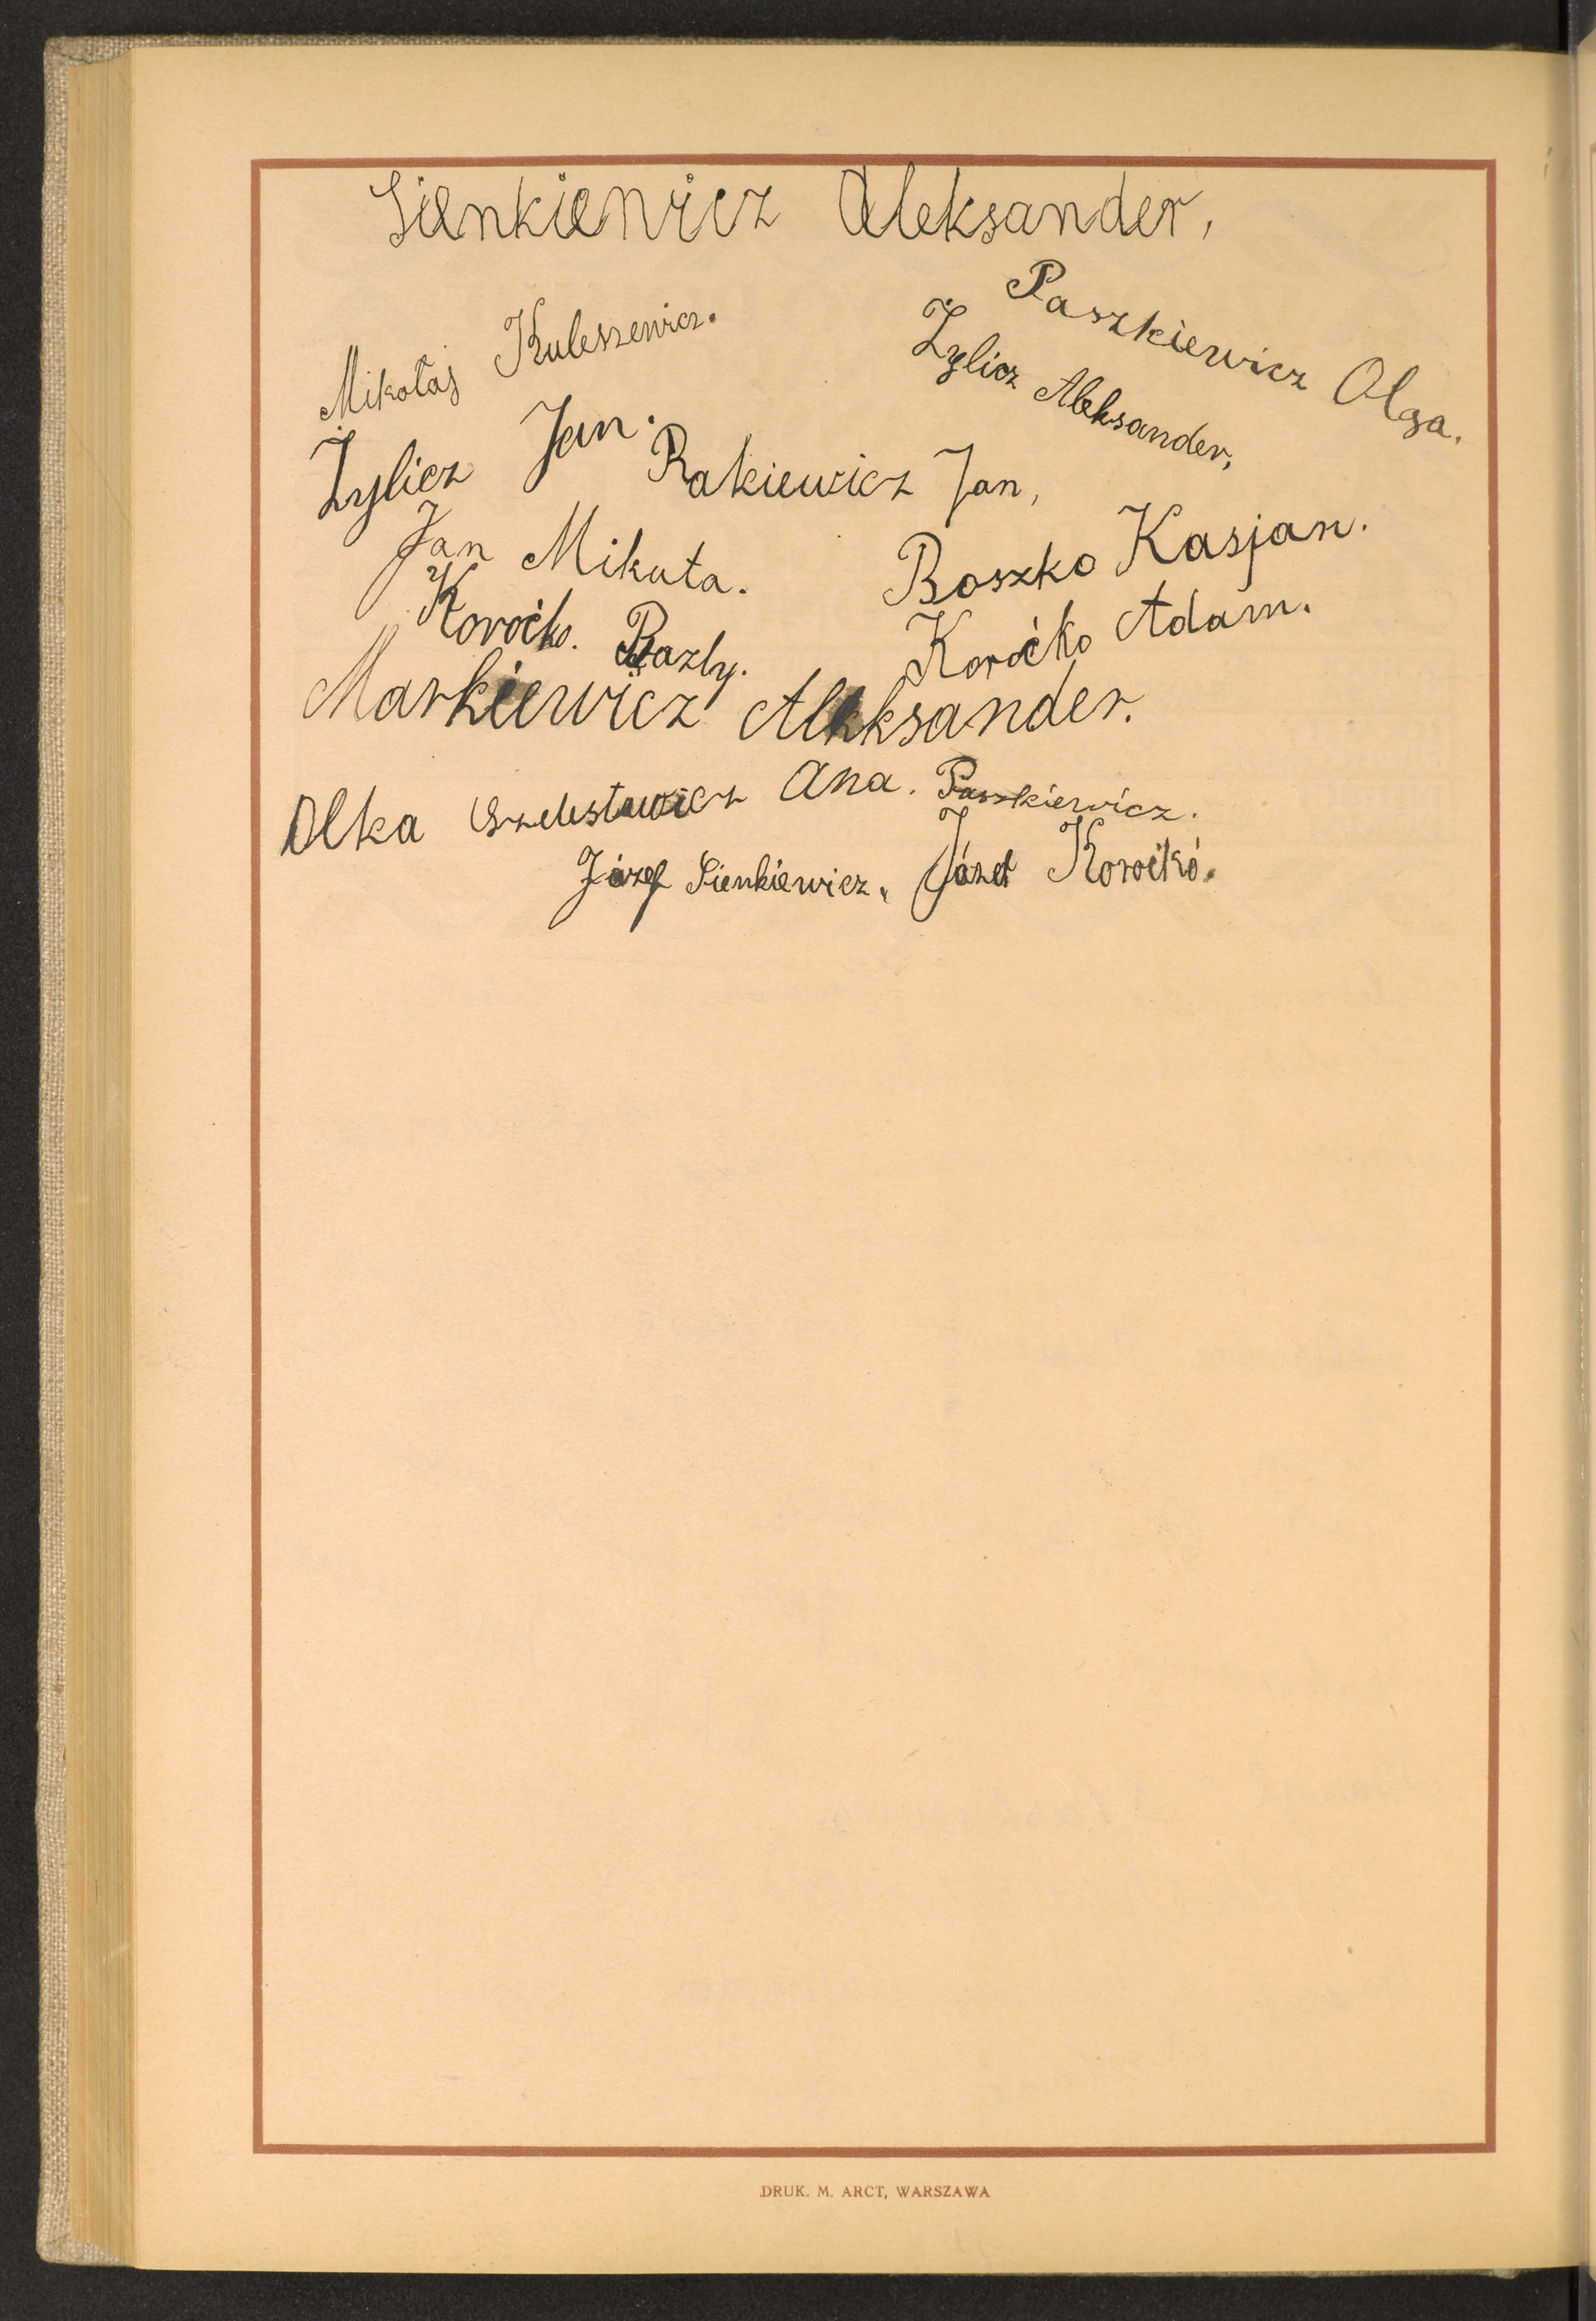 Sienkiewicz Aleksander,
Paszkiewicz Olga.
Mikołaj Kuleszewicz.
Żylicz Aleksander,
Żylicz Jan.
Rakiewicz Jan,
Jan Mikuta.
Boszko Kasjan.
Koroćko. Bazly.
Koroćko Adam.
Markiewicz Aleksander.
Olka
Ana. Paszkiewicz.
Józef Sienkiewicz.
Józef Koroćko.
DRUK. M. ARCT, WARSZAWA